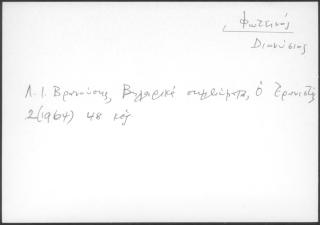 Φωτεινός
Διονύσιος
Λ. Ι. Βρανούσης, Βλαχικά σημειώματα, Ὁ Ἐρανιστής
2(1964) 48 κἑξ